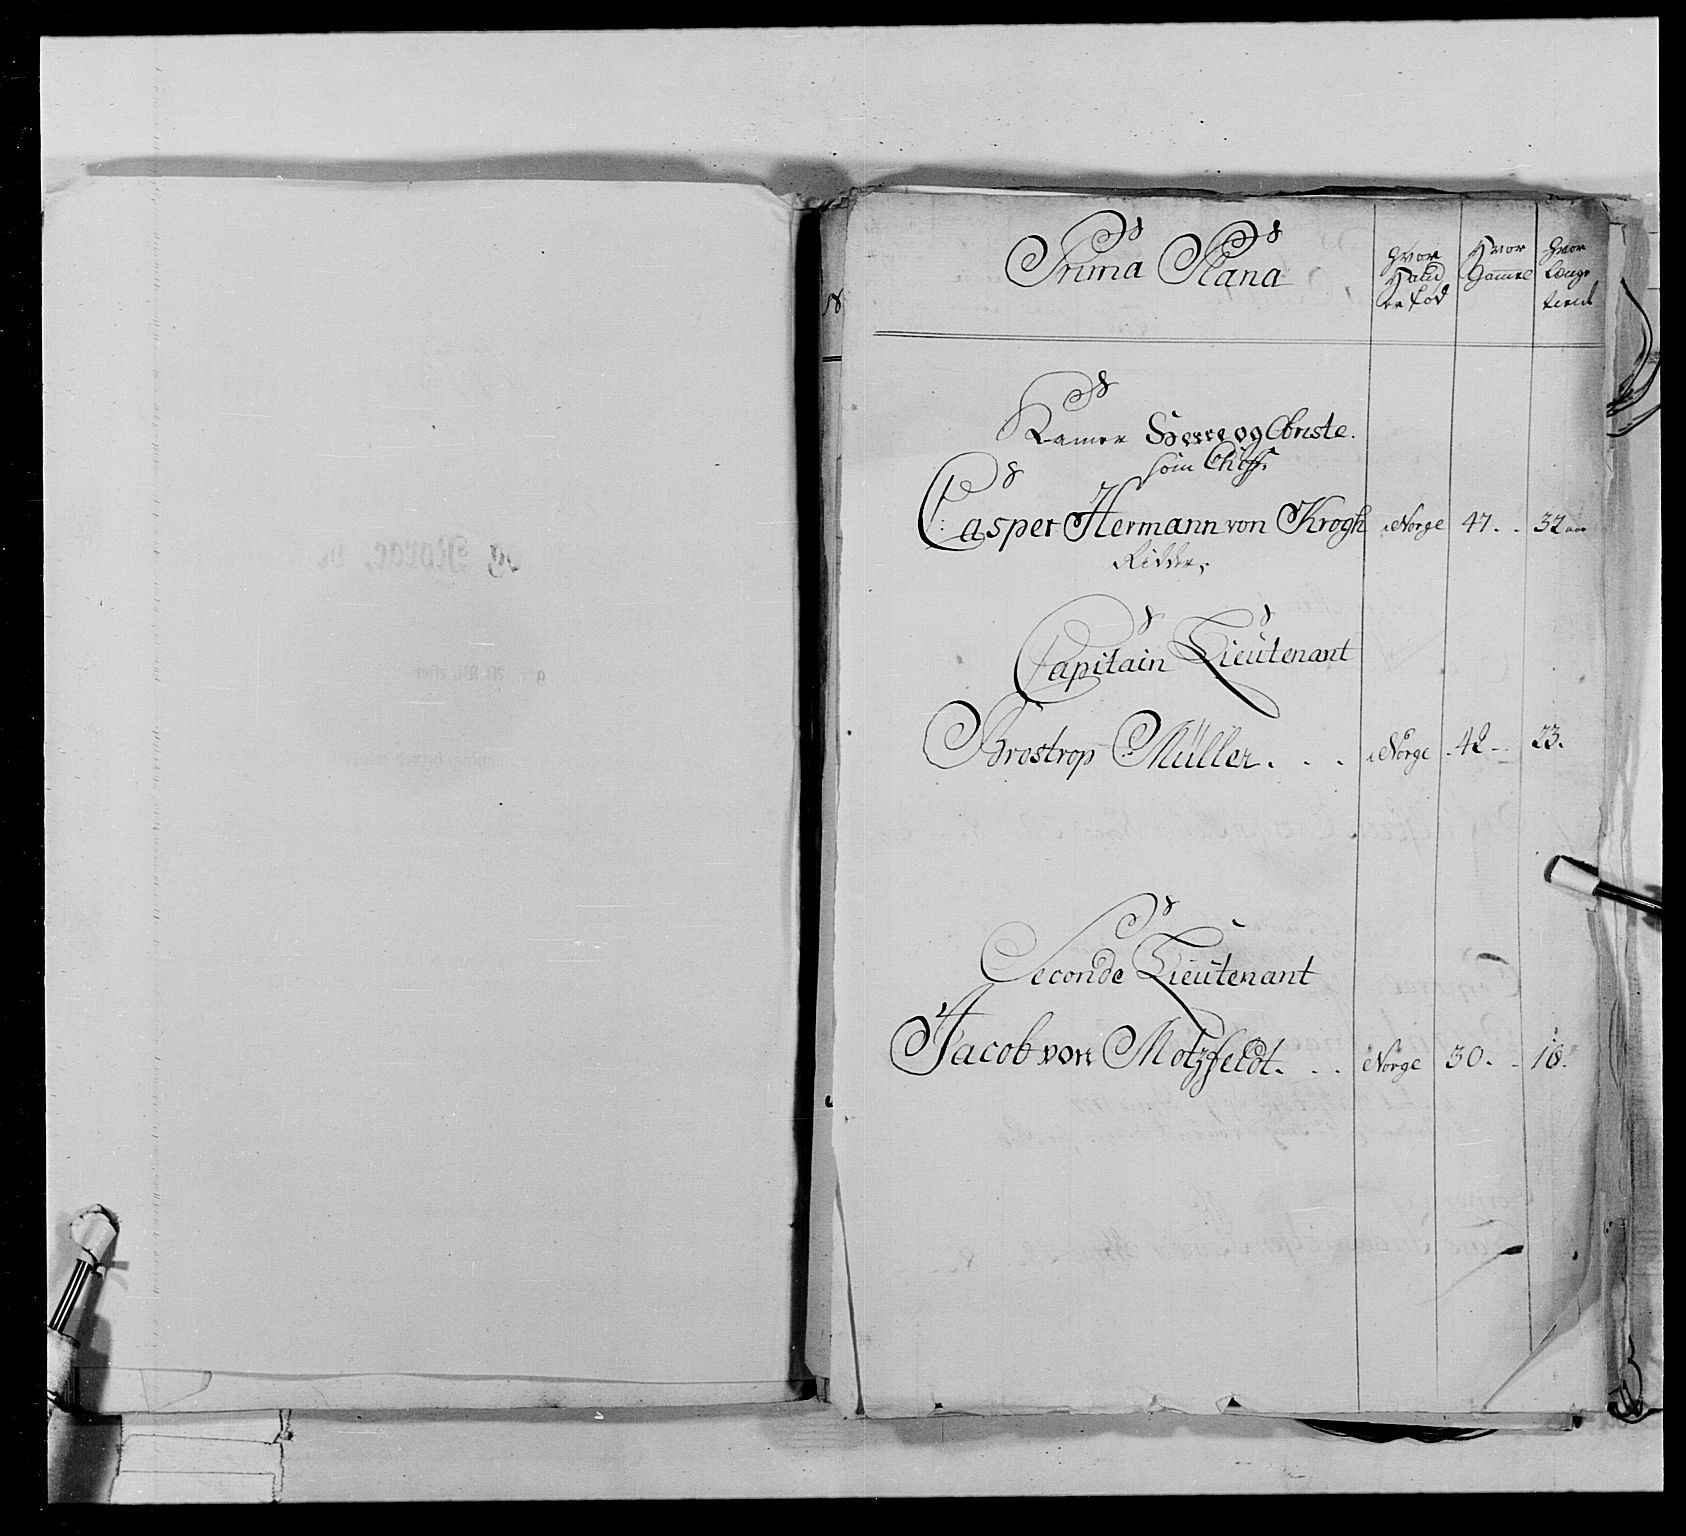 Prima Plana
Hvor
Hand
er fød
Hvor
Gamel
Hvor
længe
tient
Kamer Herre og Obriste.
som Cheff.
Casper Hermann von Krogh i Norge 47. . 32 aar
Ridder,
Capitain Lieutenant
Brostrop Müller. . . i Norge . 42 . . 23.
Seconde Lieutenant
Jacob von Motzfeldt. . . i Norge 30. . 16.